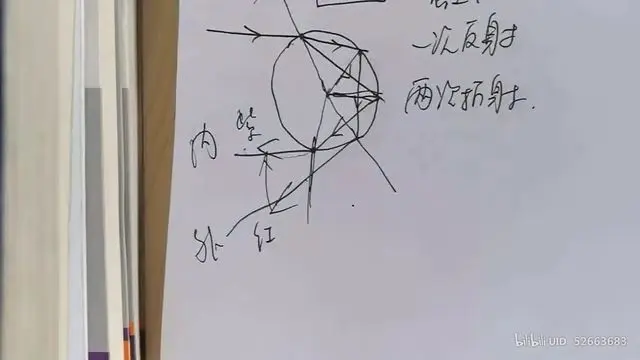 一次反射
两次折射.
内 紫
外 红
bilibili UID 52663683